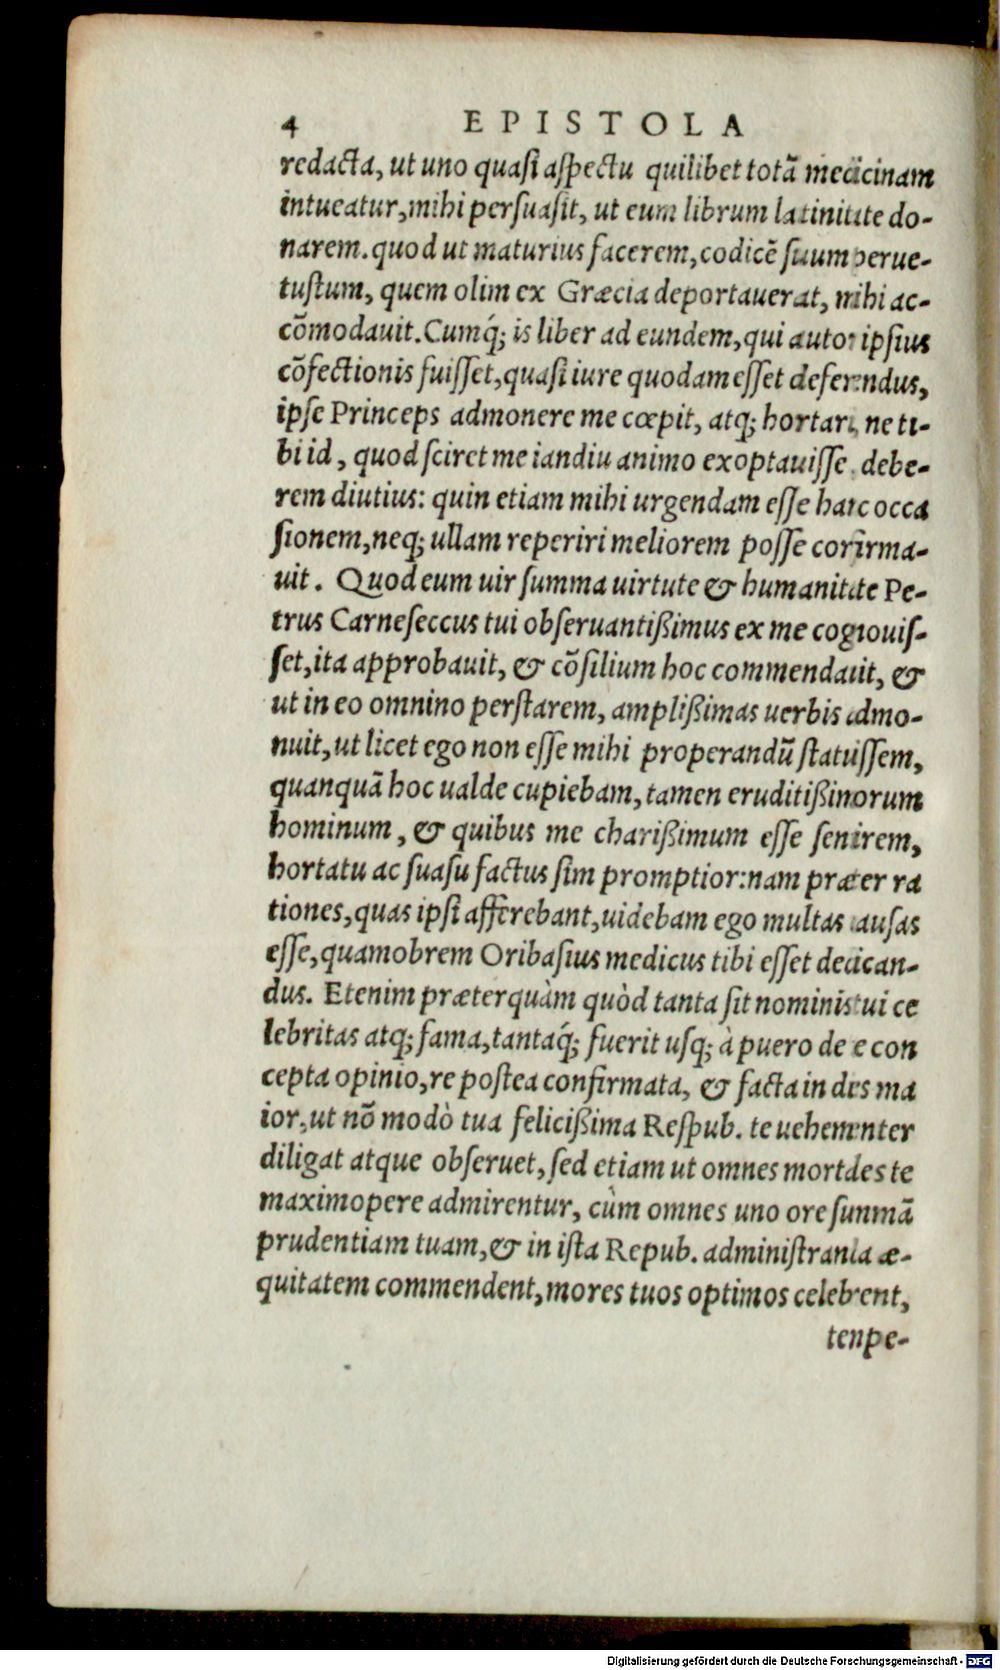 4 EPISTOLA
redacta, ut uno quasi aspectu quilibet totā medicinam
intueatur, mihi persuasit, ut eum librum latinitate do-
narem. quod ut maturius facerem, codicē suum perue-
tustum, quem olim ex Græcia deportauerat, mihi ac-
cōmodauit. Cumq́; is liber ad eundem, qui autor ipsius
cōfectionis fuisset, quasi iure quodam esset deferendus,
ipse Princeps admonere me cœpit, atq; hortari, ne ti-
bi id, quod sciret me iandiu animo exoptauisse, debe-
rem diutius: quin etiam mihi urgendam esse hanc occa
sionem, neq; ullam reperiri meliorem posse confirma-
uit. Quod eum uir summa uirtute & humanitate Pe-
trus Carneseccus tui obseruantißimus ex me cognouis-
set, ita approbauit, & cōsilium hoc commendauit, &
ut in eo omnino perstarem, amplißimas uerbis admo-
nuit, ut licet ego non esse mihi properandū statuissem,
quanquā hoc ualde cupiebam, tamen eruditißimorum
hominum, & quibus me charißimum esse sentirem,
hortatu ac suasu factus sim promptior: nam præter ra
tiones, quas ipsi afferebant, uidebam ego multas causas
esse, quamobrem Oribasius medicus tibi esset dedican-
dus. Etenim præterquàm quòd tanta sit nominis tui ce
lebritas atq; fama, tantaq́; fuerit usq; à puero de te con
cepta opinio, re postea confirmata, & facta in dies ma
ior, ut nō modò tua felicißima Respub. te uehementer
diligat atque obseruet, sed etiam ut omnes mortales te
maximopere admirentur, cùm omnes uno ore summā
prudentiam tuam, & in ista Repub. administranda æ-
quitatem commendent, mores tuos optimos celebrent,
tempe-
Digitalisierung gefördert durch die Deutsche Forschungsgemeinschaft - DFG